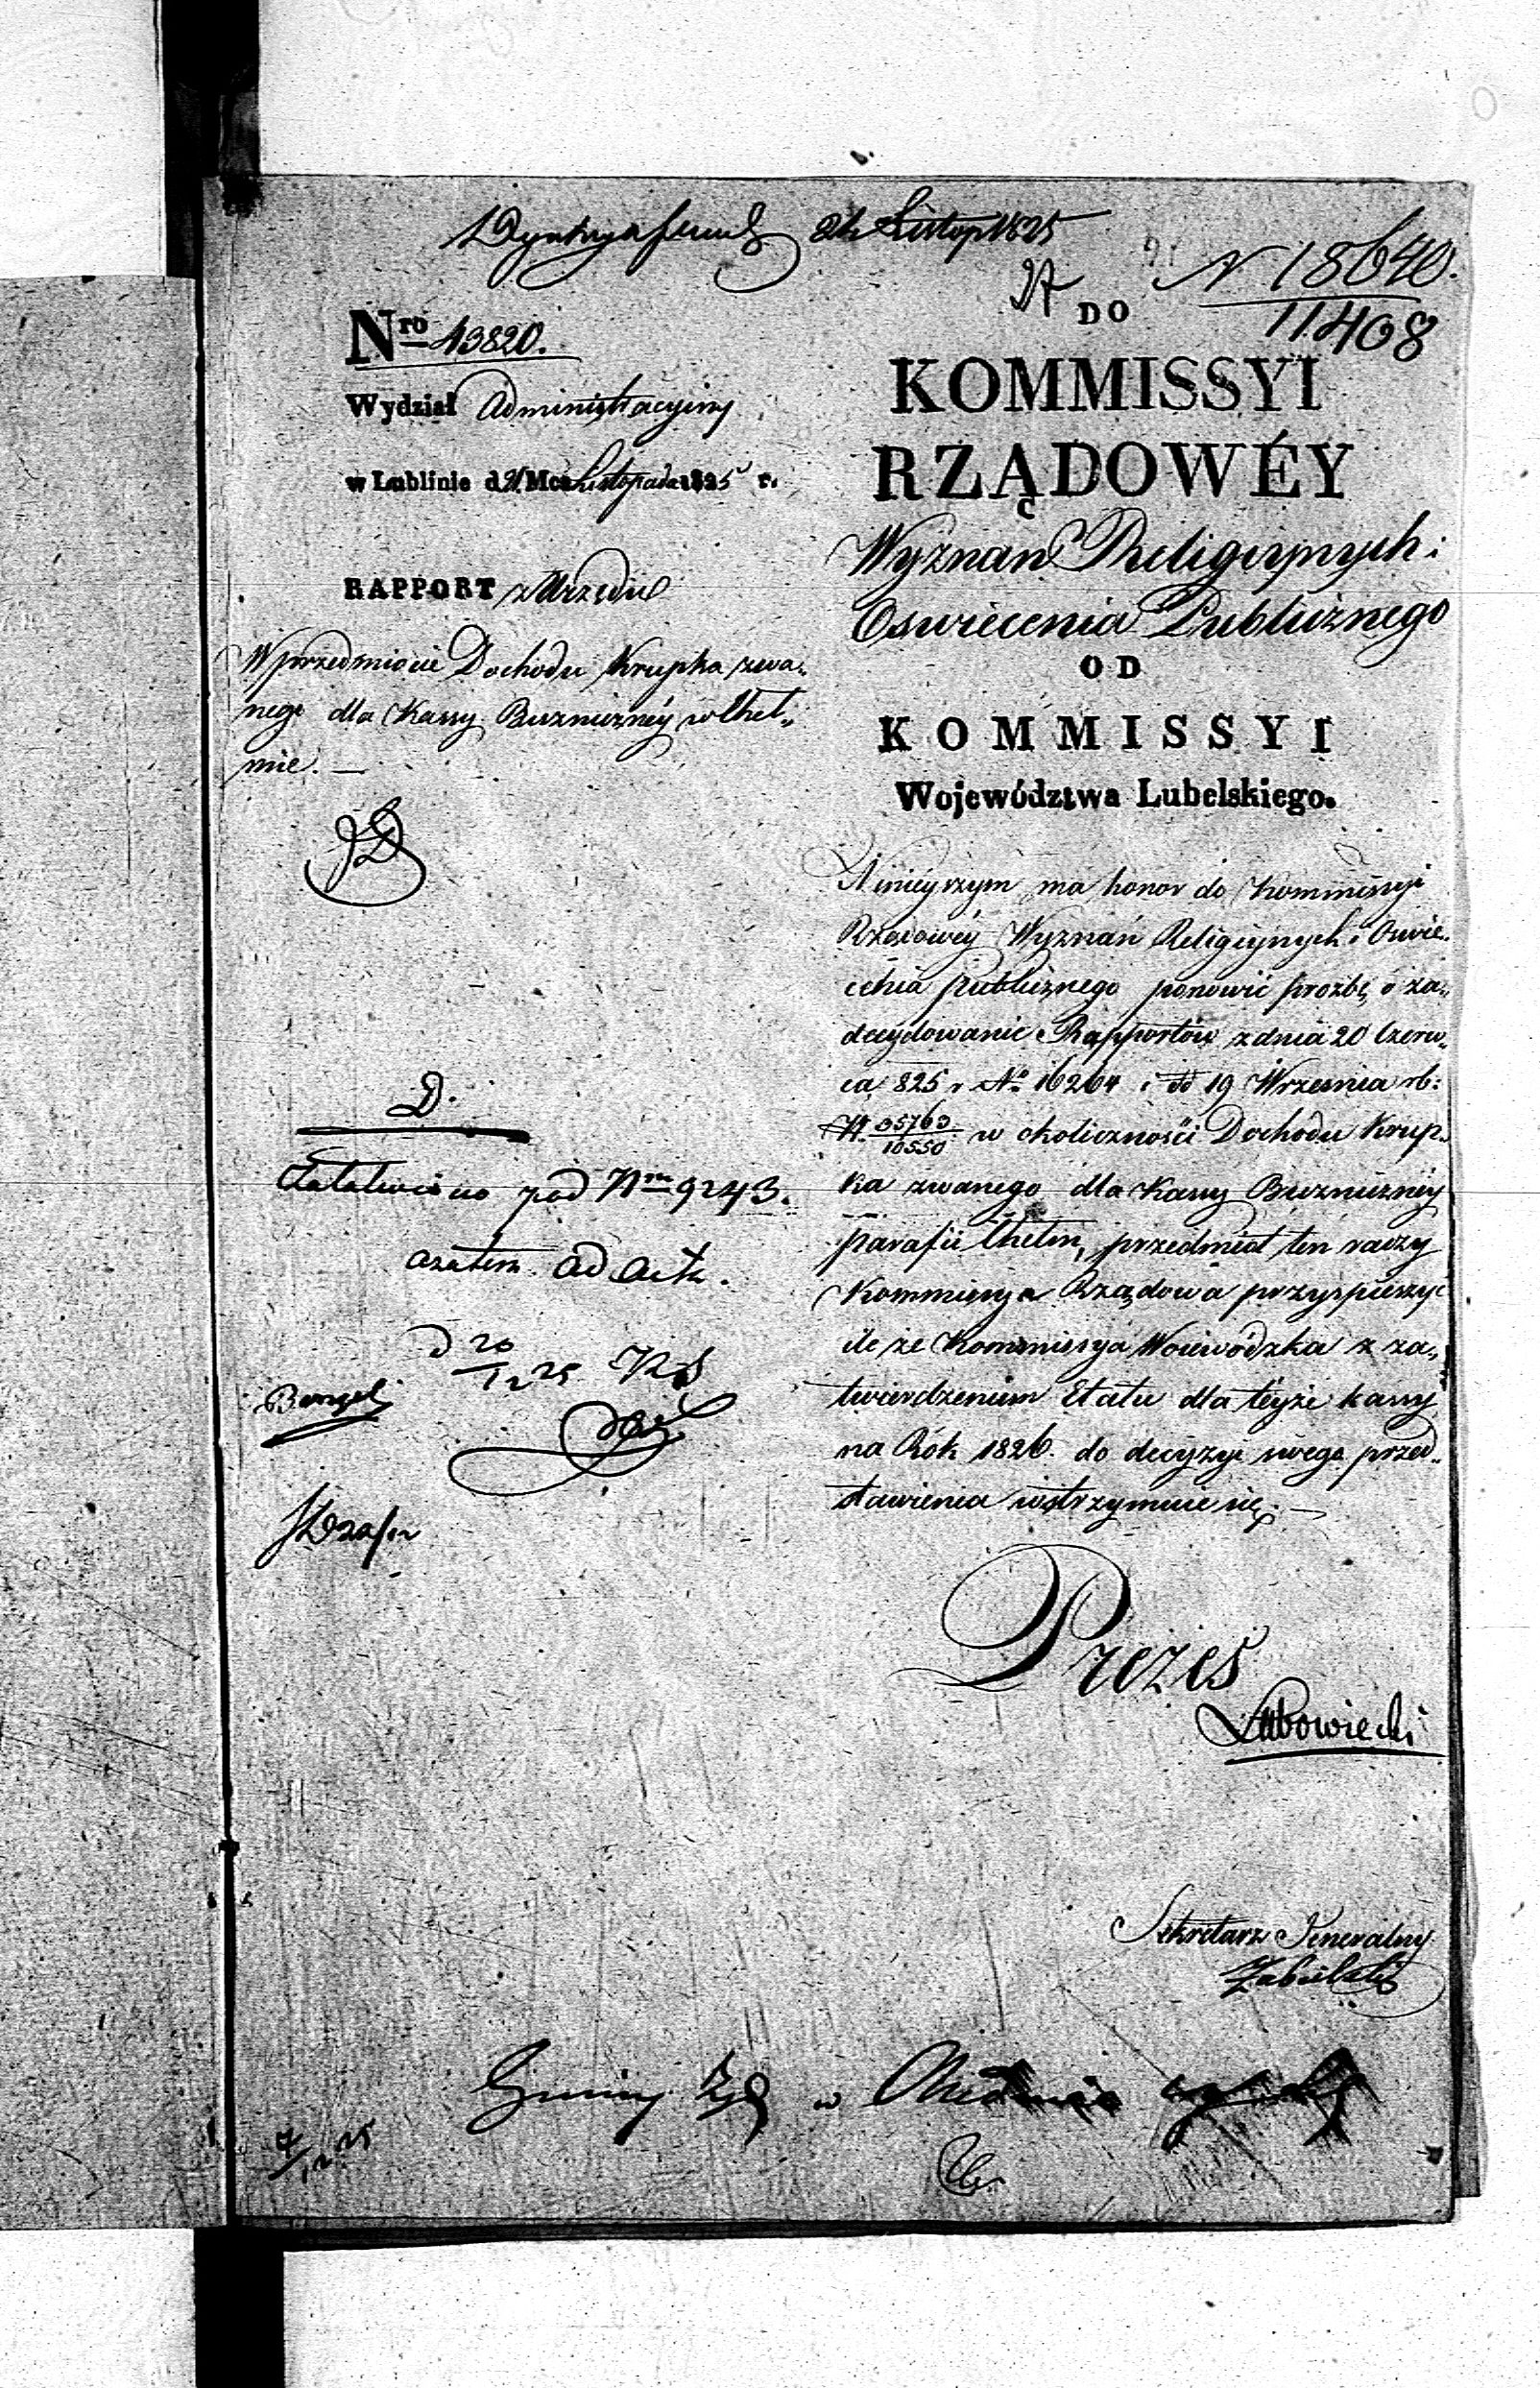 Listop 1825
N 18640.
11408
Nro 43820.
Wydział Administracyiny
w Lublinie d. 21 Mca Listopada 1825 r.
RAPPORT z Urzędu
W przedmiocie Dochodu Krupka zwa„
nego dla Kassy Buzniczney w Cheł„
mie. —
D.
Załatwiono pod Nrm 9243.
a zatem ad acta.
d 20/12 25
DO
KOMMISSYI
RZĄDOWÉY
Wyznań Religiynych i
Oswiecenia Publicznego
OD
KOMMISSYI
Województwa Lubelskiego.
Ninieyszym ma honor do Kommissyi
Rządowéy Wyznań Religiynych i Oswie„
cenia Publicznego ponowić prozbę o za„
decydowanie Rapportów z dnia 20 Czerw„
ca 825 r No 16264 i 19 Września rb:
N. 35763/10550 w okoliczności Dochodu Krup„
ka zwanego dla Kassy Buzniczney
parafii Chełm, przedmiot ten raczy
Kommissya Rządowa przyspieszyć
ile że Kommissya Woiewódzka z za„
twierdzeniem Etatu dla teyże kassy
na Rok 1826. do decyzyi swego przed„
stawienia wstrzymuie się. —
Prezes
Lubowiecki
Sekretarz Jeneralny
Zabielski
Gminy Żyd w
7/12 25